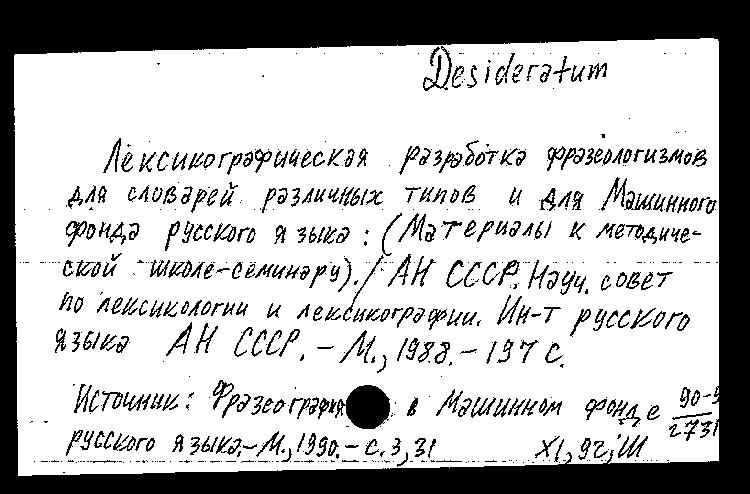 Desideratum
Лексикографическая разработка фразеологизмов
для словарей различных типов и для Машинного
фонда русского языка: (Материалы к методиче-
ской школе-семинару). / АН СССР. Науч. совет
по лексикологии и лексикографии. Ин-т русского
языка АН СССР. - М., 1988. - 197 с.
Источник: в Машинном фонде 90-9
русского языка. - М., 1990. - с. 3, 31 2731
XI, 92, Ш